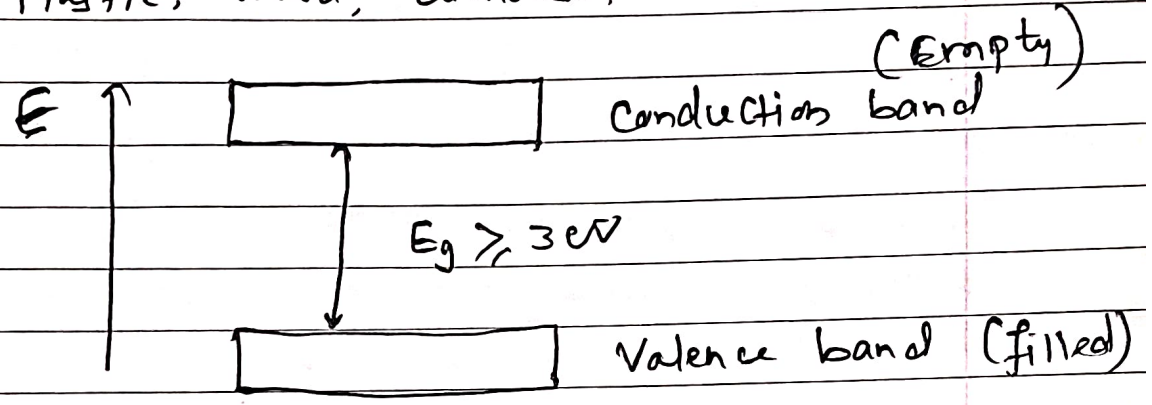 Plastic,
(Empty)
E
Conduction band
Eg ⩾ 3 eV
Valence band (filled)